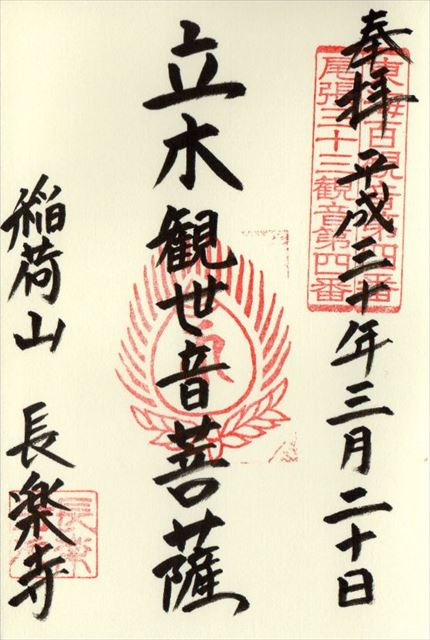 奉拝 平成三十年三月二十日
東海百観音第四番
尾張三十三観音第四番
立木観世音菩薩
稲荷山 長楽寺